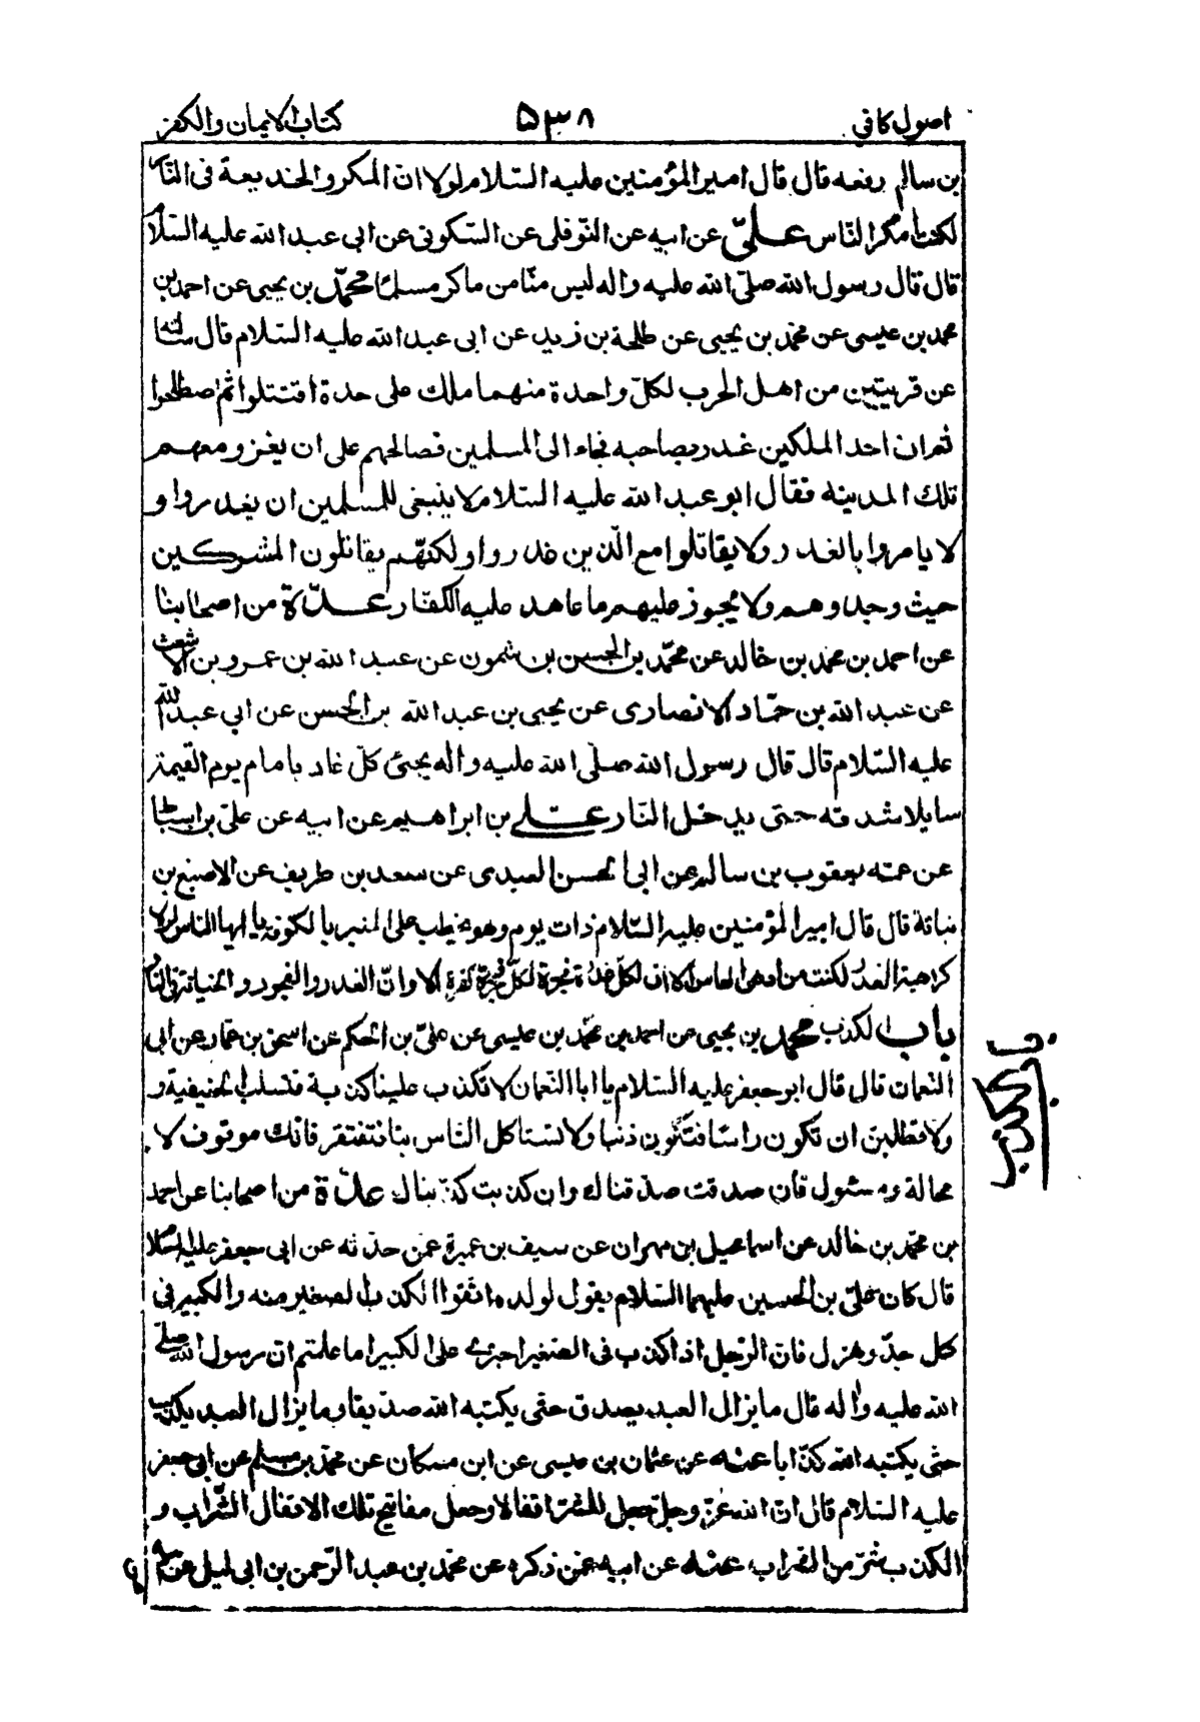 اصول كافي
۵۳۸
كتاب الايمان والكفر
بن سالم رفعه قال قال امير المؤمنين عليه السّلام لولا انّ المكر والخديعة فى النّار
لكنت امكر النّاس علىّ عن ابيه عن النّوفلى عن السّكونى عن ابى عبد الله عليه السّلام
قال قال رسول الله صلّى الله عليه واله ليس منّا من ماكر مسلما محمّد بن يحيى عن احمد بن
محمد بن عيسى عن محمّد بن يحيى عن طلحة بن زيد عن ابى عبد الله عليه السّلام قال سئلته
عن قريتين من اهل الحرب لكلّ واحدة منهما ملك على حدة اقتتلوا ثمّ اصطلحوا
ثم ان احد الملكين غدر بصاحبه فجاء الى المسلمين فصالحهم على ان يغزو معهم
تلك المدينه فقال ابو عبد الله عليه السّلام لا ينبغى للمسلمين ان يغدروا و
لا يامروا بالغدر ولا يقاتلوا مع الّذين غدروا ولكنّهم يقاتلون المشركين
حيث وجدوهم ولا يجوز عليهم ما عاهد عليه الكفّار عدّة من اصحابنا
عن احمد بن محمّد بن خالد عن محمّد بن الحسن بن شمون عن عبد الله بن عمرو بن الاشعث
عن عبد الله بن حمّاد الانصارى عن يحيى بن عبد الله بن الحسن عن ابي عبد الله
عليه السّلام قال قال رسول الله صلّى الله عليه واله يجئ كلّ غادر بامام يوم القيمة
مايلا شدقه حتى يدخل النّار علي بن ابراهيم عن ابيه عن علىّ بن اسباط
عن عمّه يعقوب بن سالم عن ابى الحسن العبدى عن سعد بن طريف عن الاصبغ بن
نباتة قال قال امير المؤمنين عليه السّلام ذات يوم وهو يخطب على المنبر بالكوفة يا ايها الناس لولا
كراهية الغدر لكنت من ادهى الناس الا ان لكلّ غدرة فجرة لكلّ فجرة كفرة الا وانّ الغدر والفجور والخيانة فى النّار
باب الكذب محمّد بن يحيى عن احمد بن محمّد بن عيسى عن علىّ بن الحكم عن اسحق بن عمار عن ابى
باب الكذب
النّعمان قال قال ابو جعفر عليه السّلام يا ابا النّعمان لا تكذب علينا كذبة فتسلب الحنيفية و
ولا تطلبنّ ان تكون راسا فتكون ذنبا ولا تستاكل النّاس بنا فتفتقر فانّك موقوف لا
محالة ومسئول فان صدقت صدّقناك وان كذبت كذّبناك عدّة من اصحابنا عن احمد
بن محمّد بن خالد عن اسماعيل بن مهران عن سيف بن عميرة عمّن حدّثه عن ابى جعفر عليه السّلام
قال كان علىّ بن الحسين عليهما السّلام يقول لولده اتّقوا الكذب الصغير منه والكبير فى
كلّ جدّ وهزل فان الرّجل اذا كذب فى الصّغير اجترئ على الكبير اما علمتم ان رسول الله صلى
الله عليه واله قال ما يزال العبد يصدق حتّى يكتبه الله صدّيقا وما يزال العبد يكذب
حتّى يكتبه الله كذّابا عنه عن عثمان بن عيسى عن ابن مسكان عن محمّد بن مسلم عن ابى جعفر
عليه السّلام قال انّ الله عزّ وجلّ جعل للشّرّ اقفالا وجعل مفاتيح تلك الاقفال الشّراب و
الكذب شرّ من الشراب عنه عن ابيه عمّن ذكره عن محمّد بن عبد الرّحمن بن ابى ليلى عن ابيه